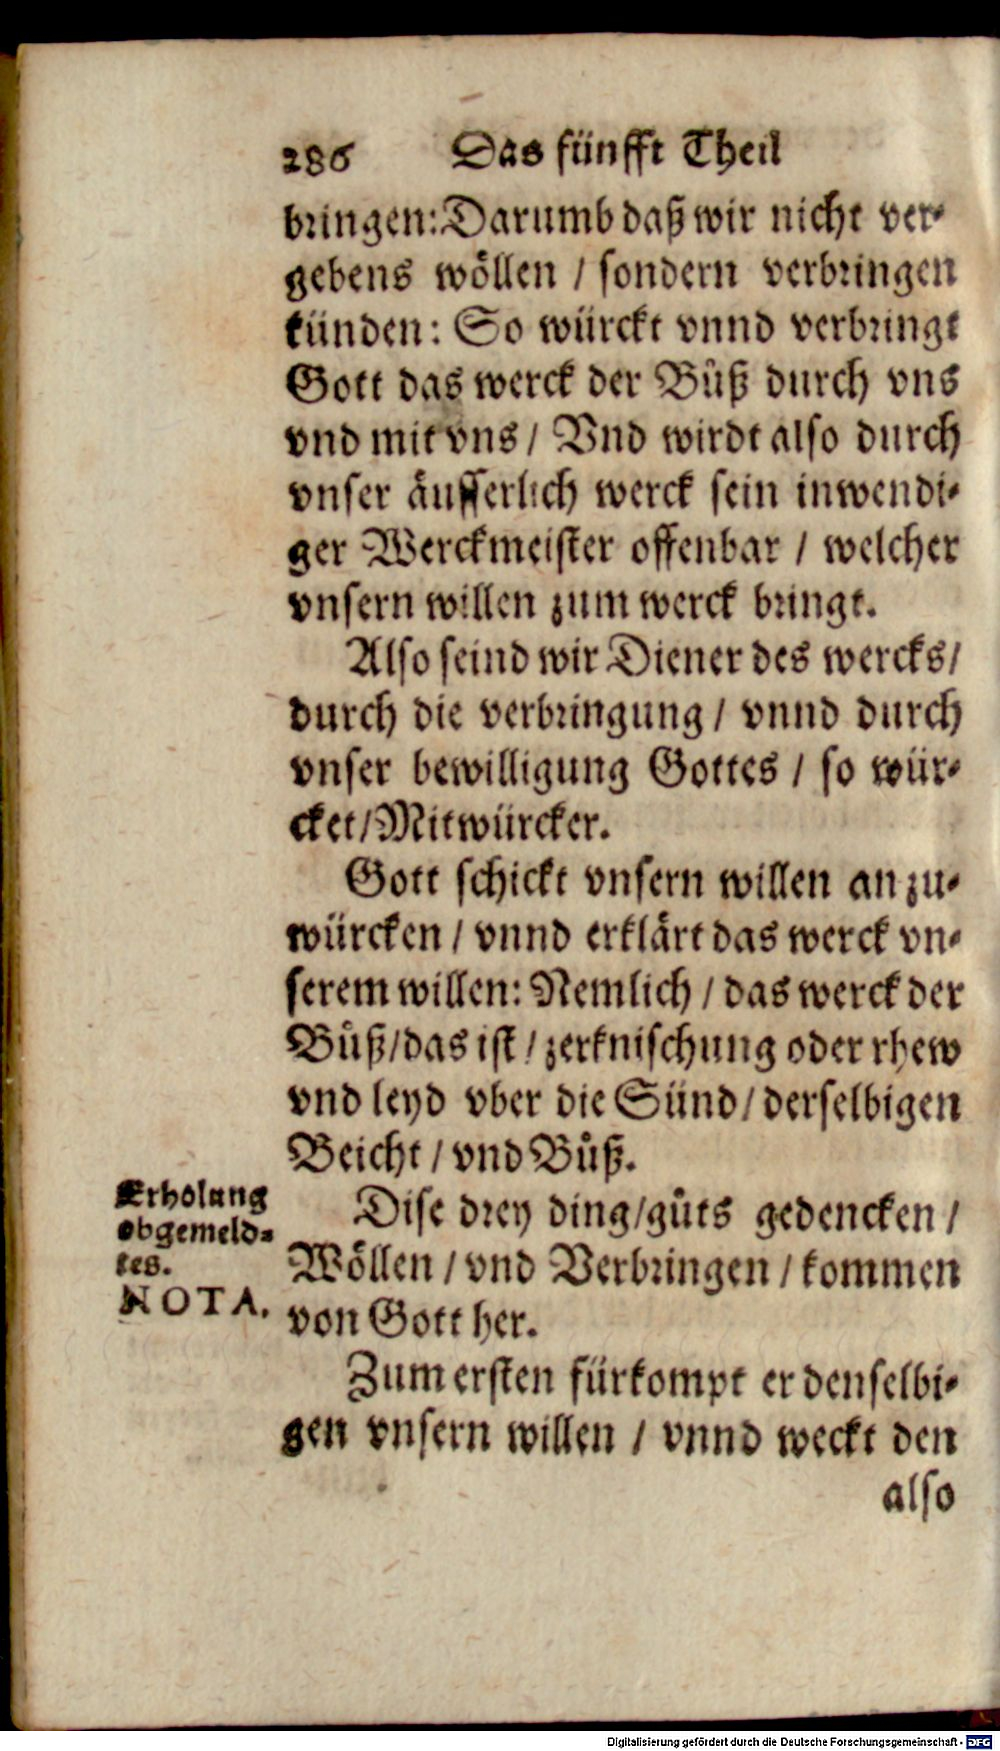 286 Das fünfft Theil
bringen: Darumb daß wir nicht ver-
gebens wöllen / sondern verbringen
künden: So würckt vnnd verbringt
Gott das werck der Bůß durch vns
vnd mit vns / Vnd wirdt also durch
vnser äusserlich werck sein inwendi-
ger Werckmeister offenbar / welcher
vnsern willen zum werck bringt.
Also seind wir Diener des wercks /
durch die verbringung / vnnd durch
vnser bewilligung Gottes / so wür-
cket / Mitwürcker.
Gott schickt vnsern willen an zu-
würcken / vnnd erklärt das werck vn-
serem willen: Nemlich / das werck der
Bůß / das ist / zerknischung oder rhew
vnd leyd vber die Sünd / derselbigen
Beicht / vnd Bůß.
Erholung
obgemeld-
tes.
NOTA.
Dise drey ding / gůts gedencken /
Wöllen / vnd Verbringen / kommen
von Gott her.
Zum ersten fürkompt er denselbi-
gen vnsern willen / vnnd weckt den
also
Digitalisierung gefördert durch die Deutsche Forschungsgemeinschaft - DFG